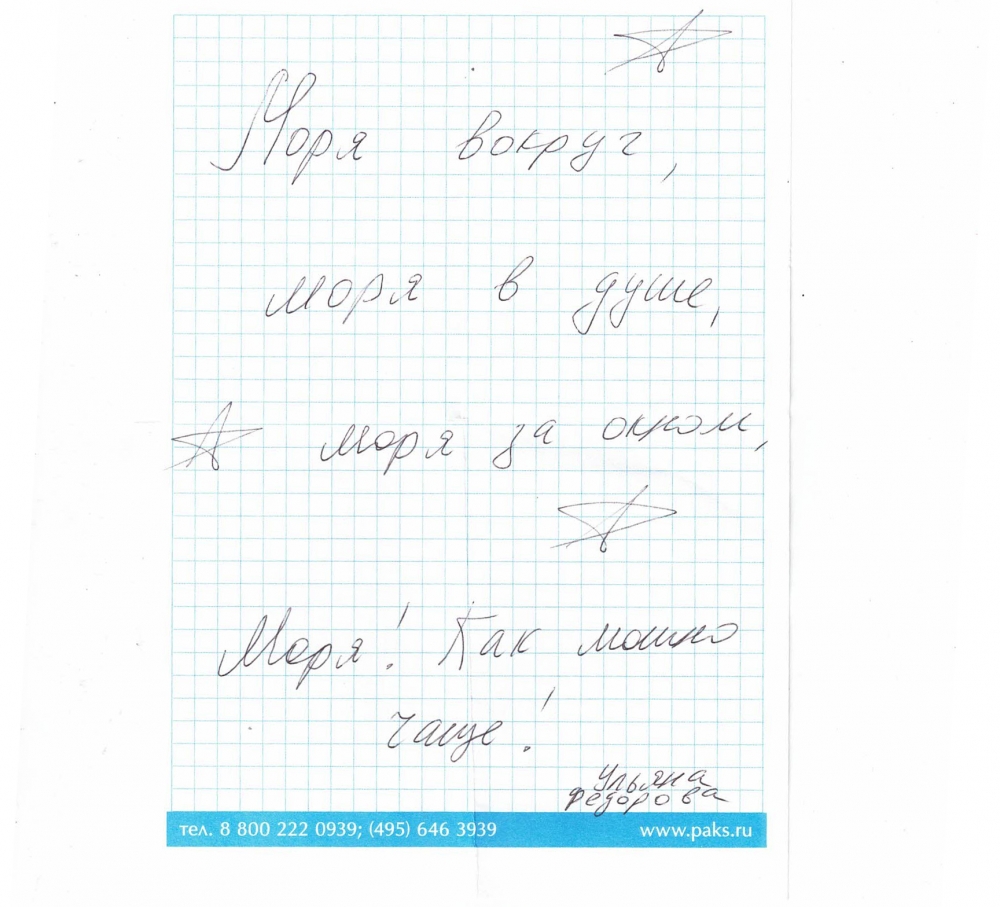 Моря вокруг,
моря в душе,
моря за окном,
Моря! Как можно
чаще!
Ульяна
Федорова
тел. 8 800 222 0939; (495) 646 3939 www.paks.ru